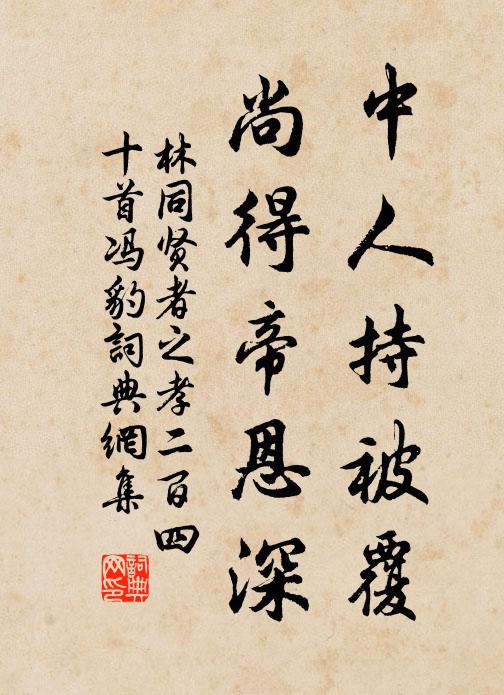 中人持被覆
尚得帝恩深
林同贤者之孝二百四
十首冯豹詞典網集
詞典网印